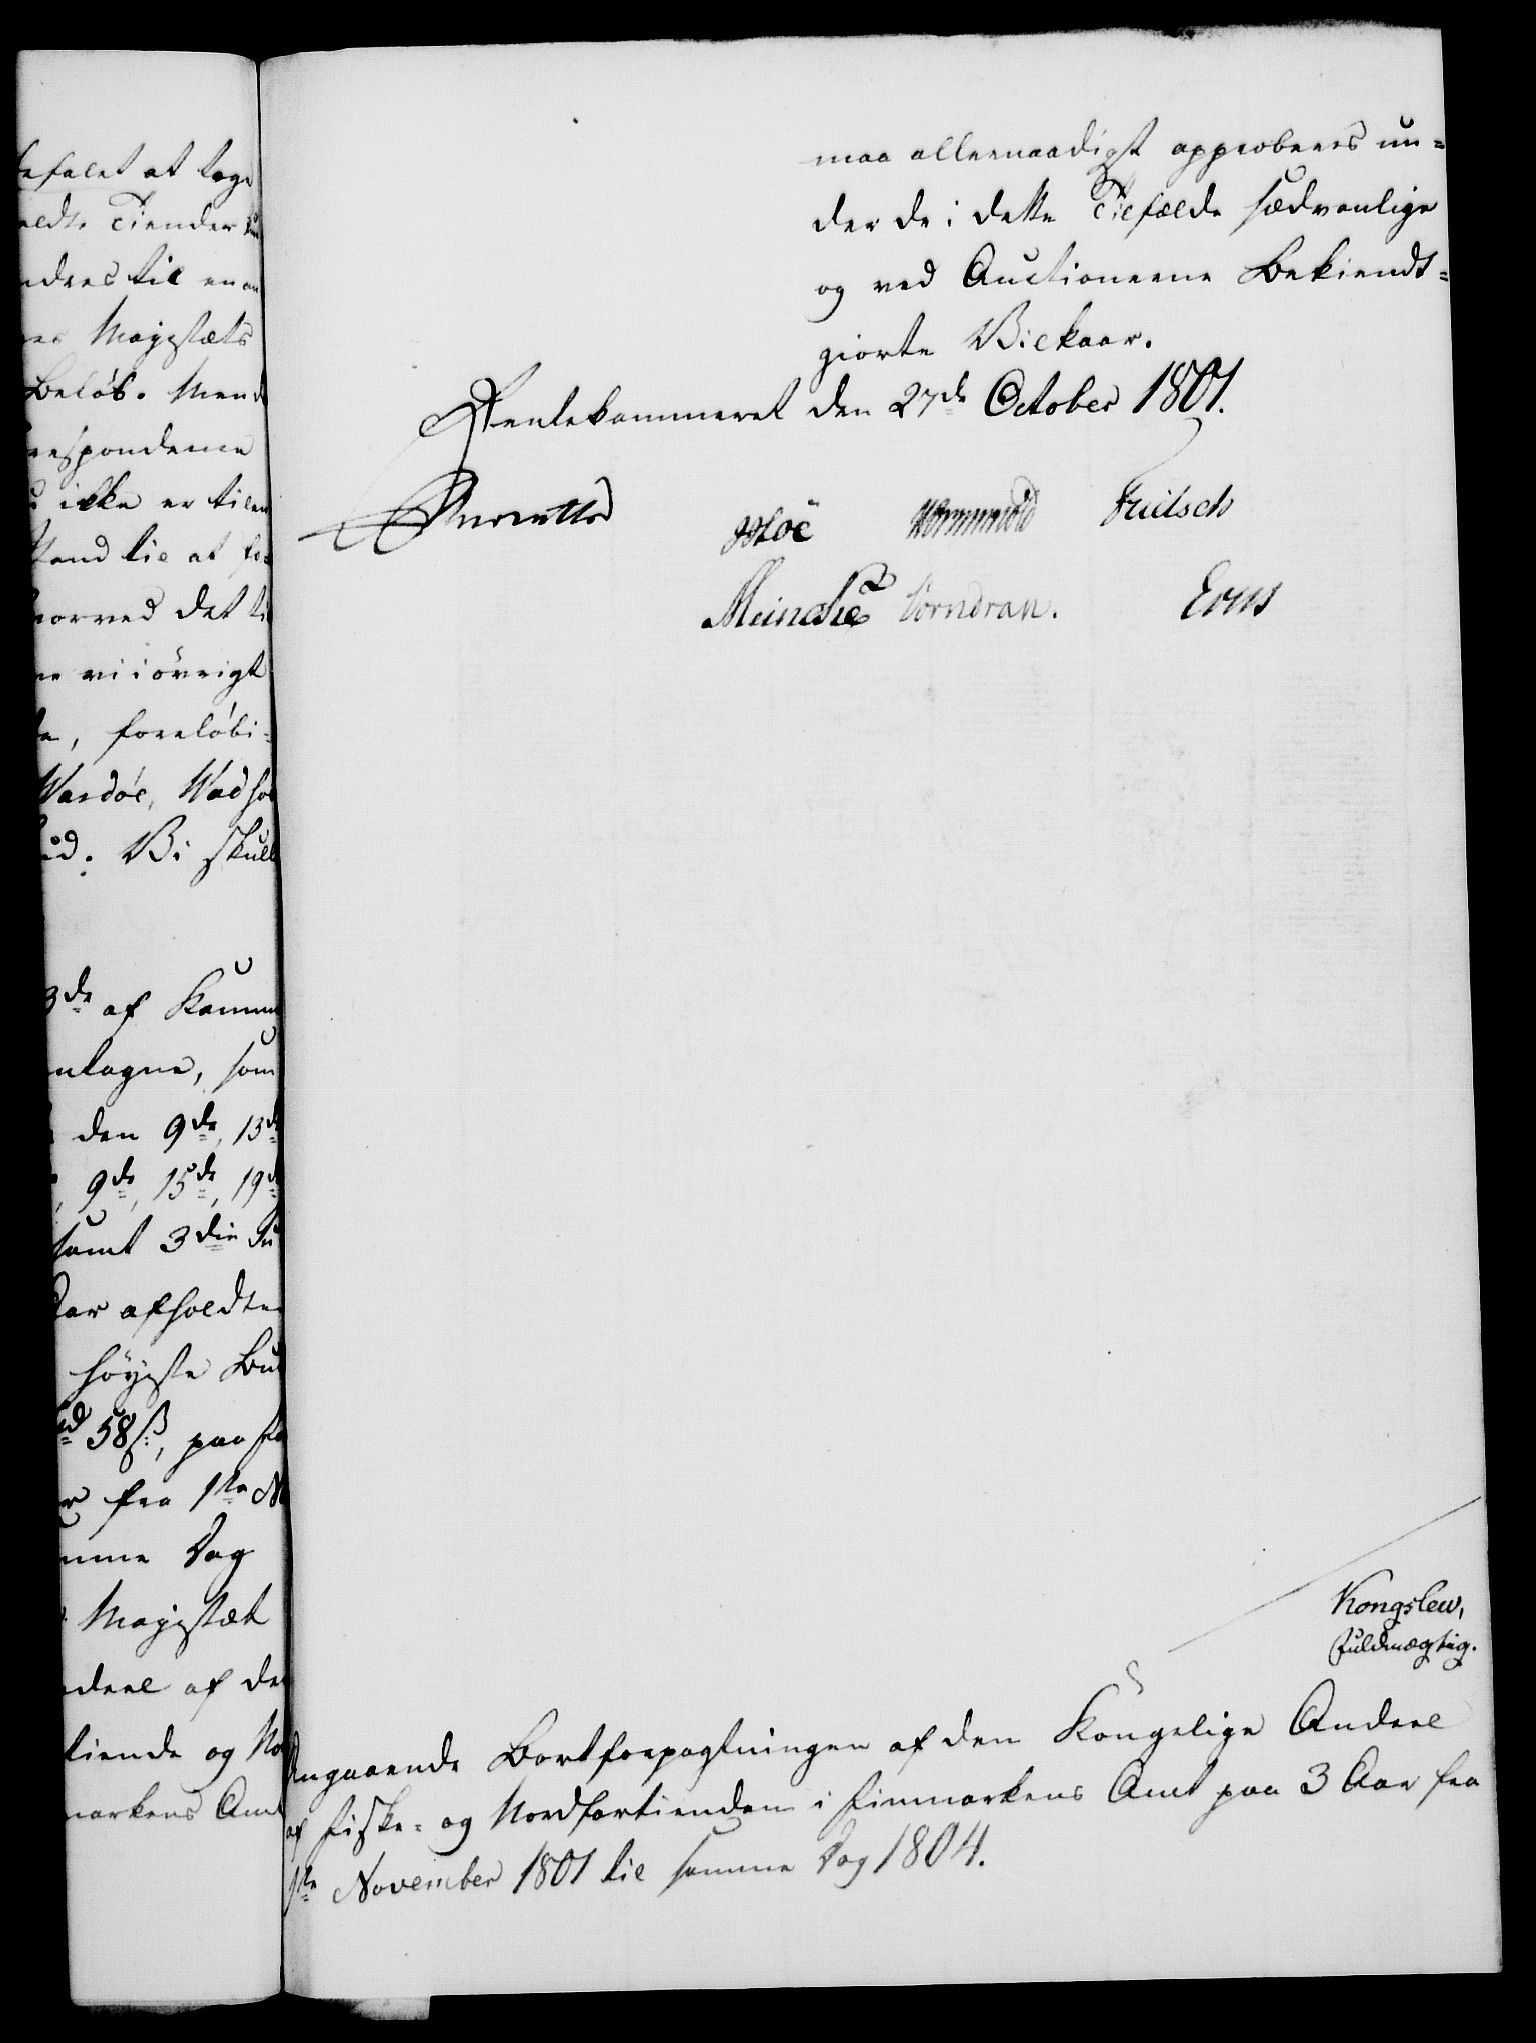 befalet at tage
Tiender
ndres til en an
res Majestæts
Beløb. Men d
respondeme
ikke er tilen
stand til at fo
hvorved det ti
ne vi iövrigt
foreløbi-
Wardøe, Wadsøe
ud. Vi skull
3de af Kamm
ntagne, som
den 9de, 13de
9de, 15de, 19de
samt 3die Su
Aar afholdte
høyeste Bud
58 ß, paa
fra 1ste No
mme Dag
Majestæt
ndeel af de
tiende og No
markens Amt
maa allernaadigst approberes un-
der de i dette Tilfælde sædvanlige
og ved Auctionerne bekiendt-
giorte Vilkaar.
Rentekammeret den 27de October 1801.
Moe Wormskiold Fritsch
Meinche Vorndran. Erns
Kongslew,
Fuldmægtig.
Angaaende Bortforpagtningen af den Kongelige Andeel
af Fiske- og Nordfartienden i Finmarkens Amt paa 3 Aar fra
1ste November 1801 til samme Dag 1804.